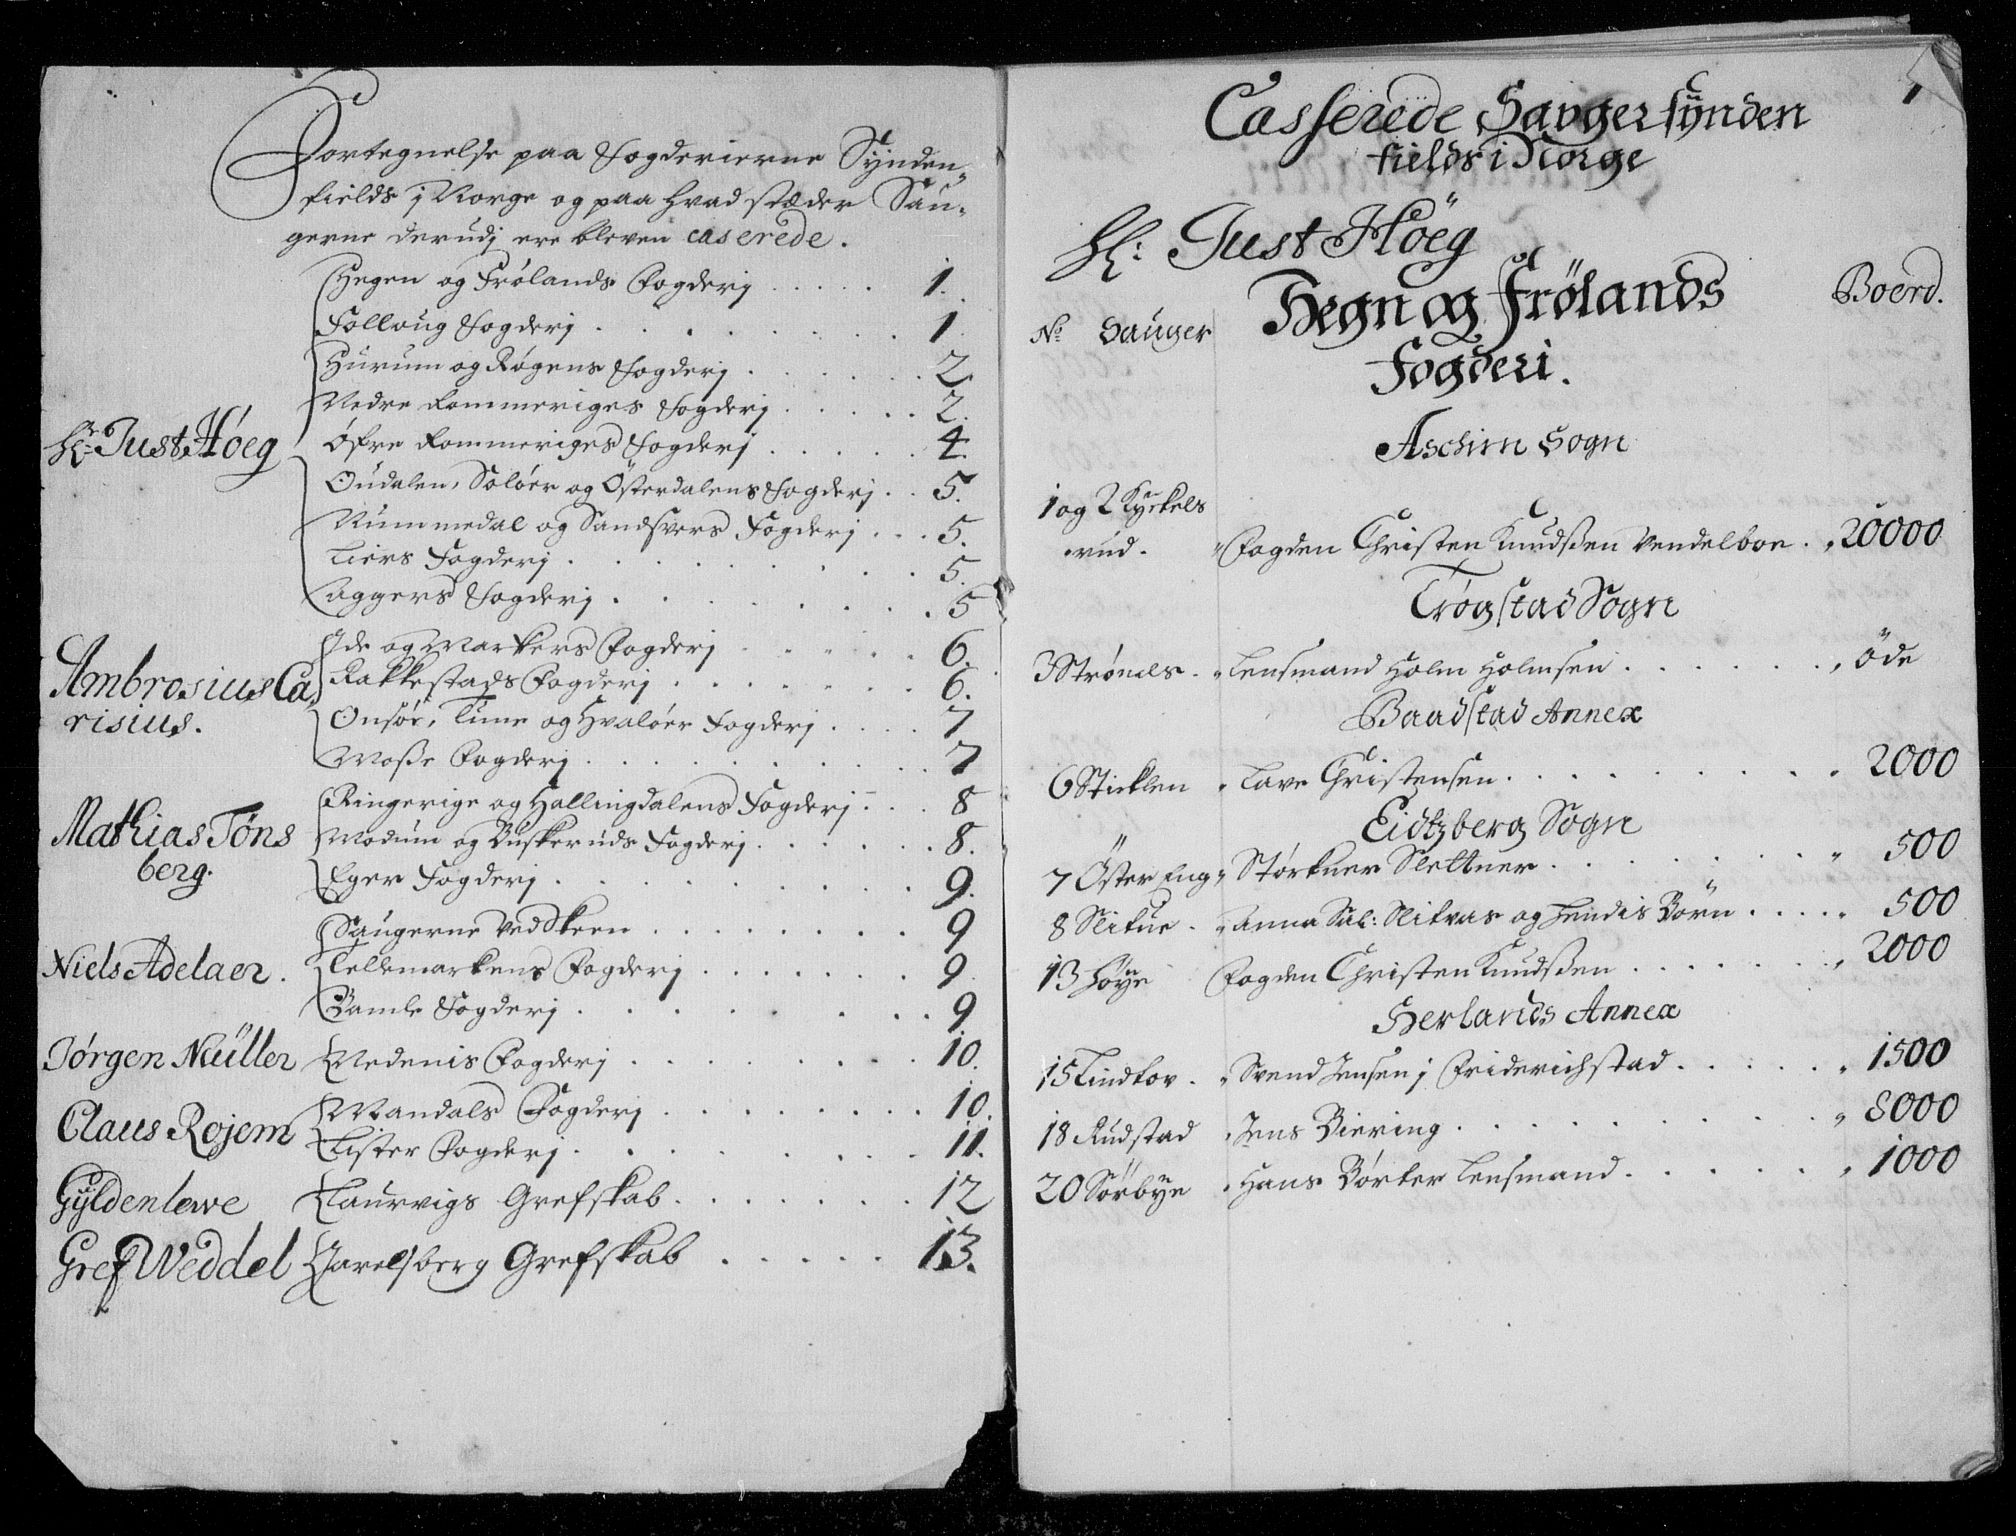 Fortegnelse paa Fogderierne Synden-
fields j Norge og paa hvad stæder Sau-
gerne derudj ere bleven caserede.
Hr: Just Höeg
Hegen og Frølands Fogderj . . . . . 1.
Folloug Fogderj . . . . . . . 1
Hurum og Røgens Fogderj . . . . . . 2.
Nedre Rommeriges Fogderj . . . . . 2.
Øfre Rommeriges Fogderj . . . . . 4.
Oudalen, Solöer og Österdalens Fogderj . . 5.
Nummedal og Sandsvers Fogderj . . . 5.
Liers Fogderj . . . . . . . . 5.
Aggers Fogderj . . . . . . . . 5
Ambrosius Ca
risius.
Ide og Markers Fogderj . . . . . 6.
Rakkestads Fogderj . . . . . . . 6.
Onsöe, Tune og Hvalöer Fogderj . . . . 7
Moße Fogderj . . . . . . . . . 7
Mathias Töns
berg.
Ringerige og Hallingdalens Fogderj . . . 8
Modum og Buskeruds Fogderj . . . . . . 8.
Eger Fogderj . . . . . . . . . 9.
Niels Adelaer.
Saugerne ved Skeen . . . . . . . . 9
Tellemarkens Fogderj . . . . . . . 9
Bamle Fogderj . . . . . . . . . 9
Jörgen Müller Nedenis Fogderj . . . . . . . . 10.
Claus Rojem
Mandals Fogderj . . . . . . . . 10.
Lister Fogderj . . . . . . . . 11.
Gyldenlewe Laurvigs Grefskab . . . . . . . 12
Gref Weddel Jarelsberg Grefskab . . . . . 13.
1
Casserede Sauger synden
fields i Norge
Hr: Just Höeg
Hegn og Frölands
Fogderi.
No Sauger
Boerd.
Aschim Sogn
1 og 2 Kyrkels
rud. Fogden Christen Knudßen Vendelboe . 20000
Trögstad Sogn
3 Strönds . Lensmand Holm Holmsen . . . . . . . öde
Baadstad Annex
6 Sticklen Lave Christensen . . . . . . . . . . 2000
Eidtzberg Sogn
7 Öster Eng Störkner Slettner . . . . . . . . . 500
8 Slitue . Anna Sal: Slitvas og hendis Börn . . . . . 500
13 Höye Fogden Christen Knudßen . . . . . . . 2000
Herlands Annex
15 Lindkov . Svend Jensen j Friderichstad . . . . . . 1500
18 Rudstad Jens Biering . . . . . . . . . . 8000
20 Sörbye Hans Börter Lensmand . . . . . . . 1000